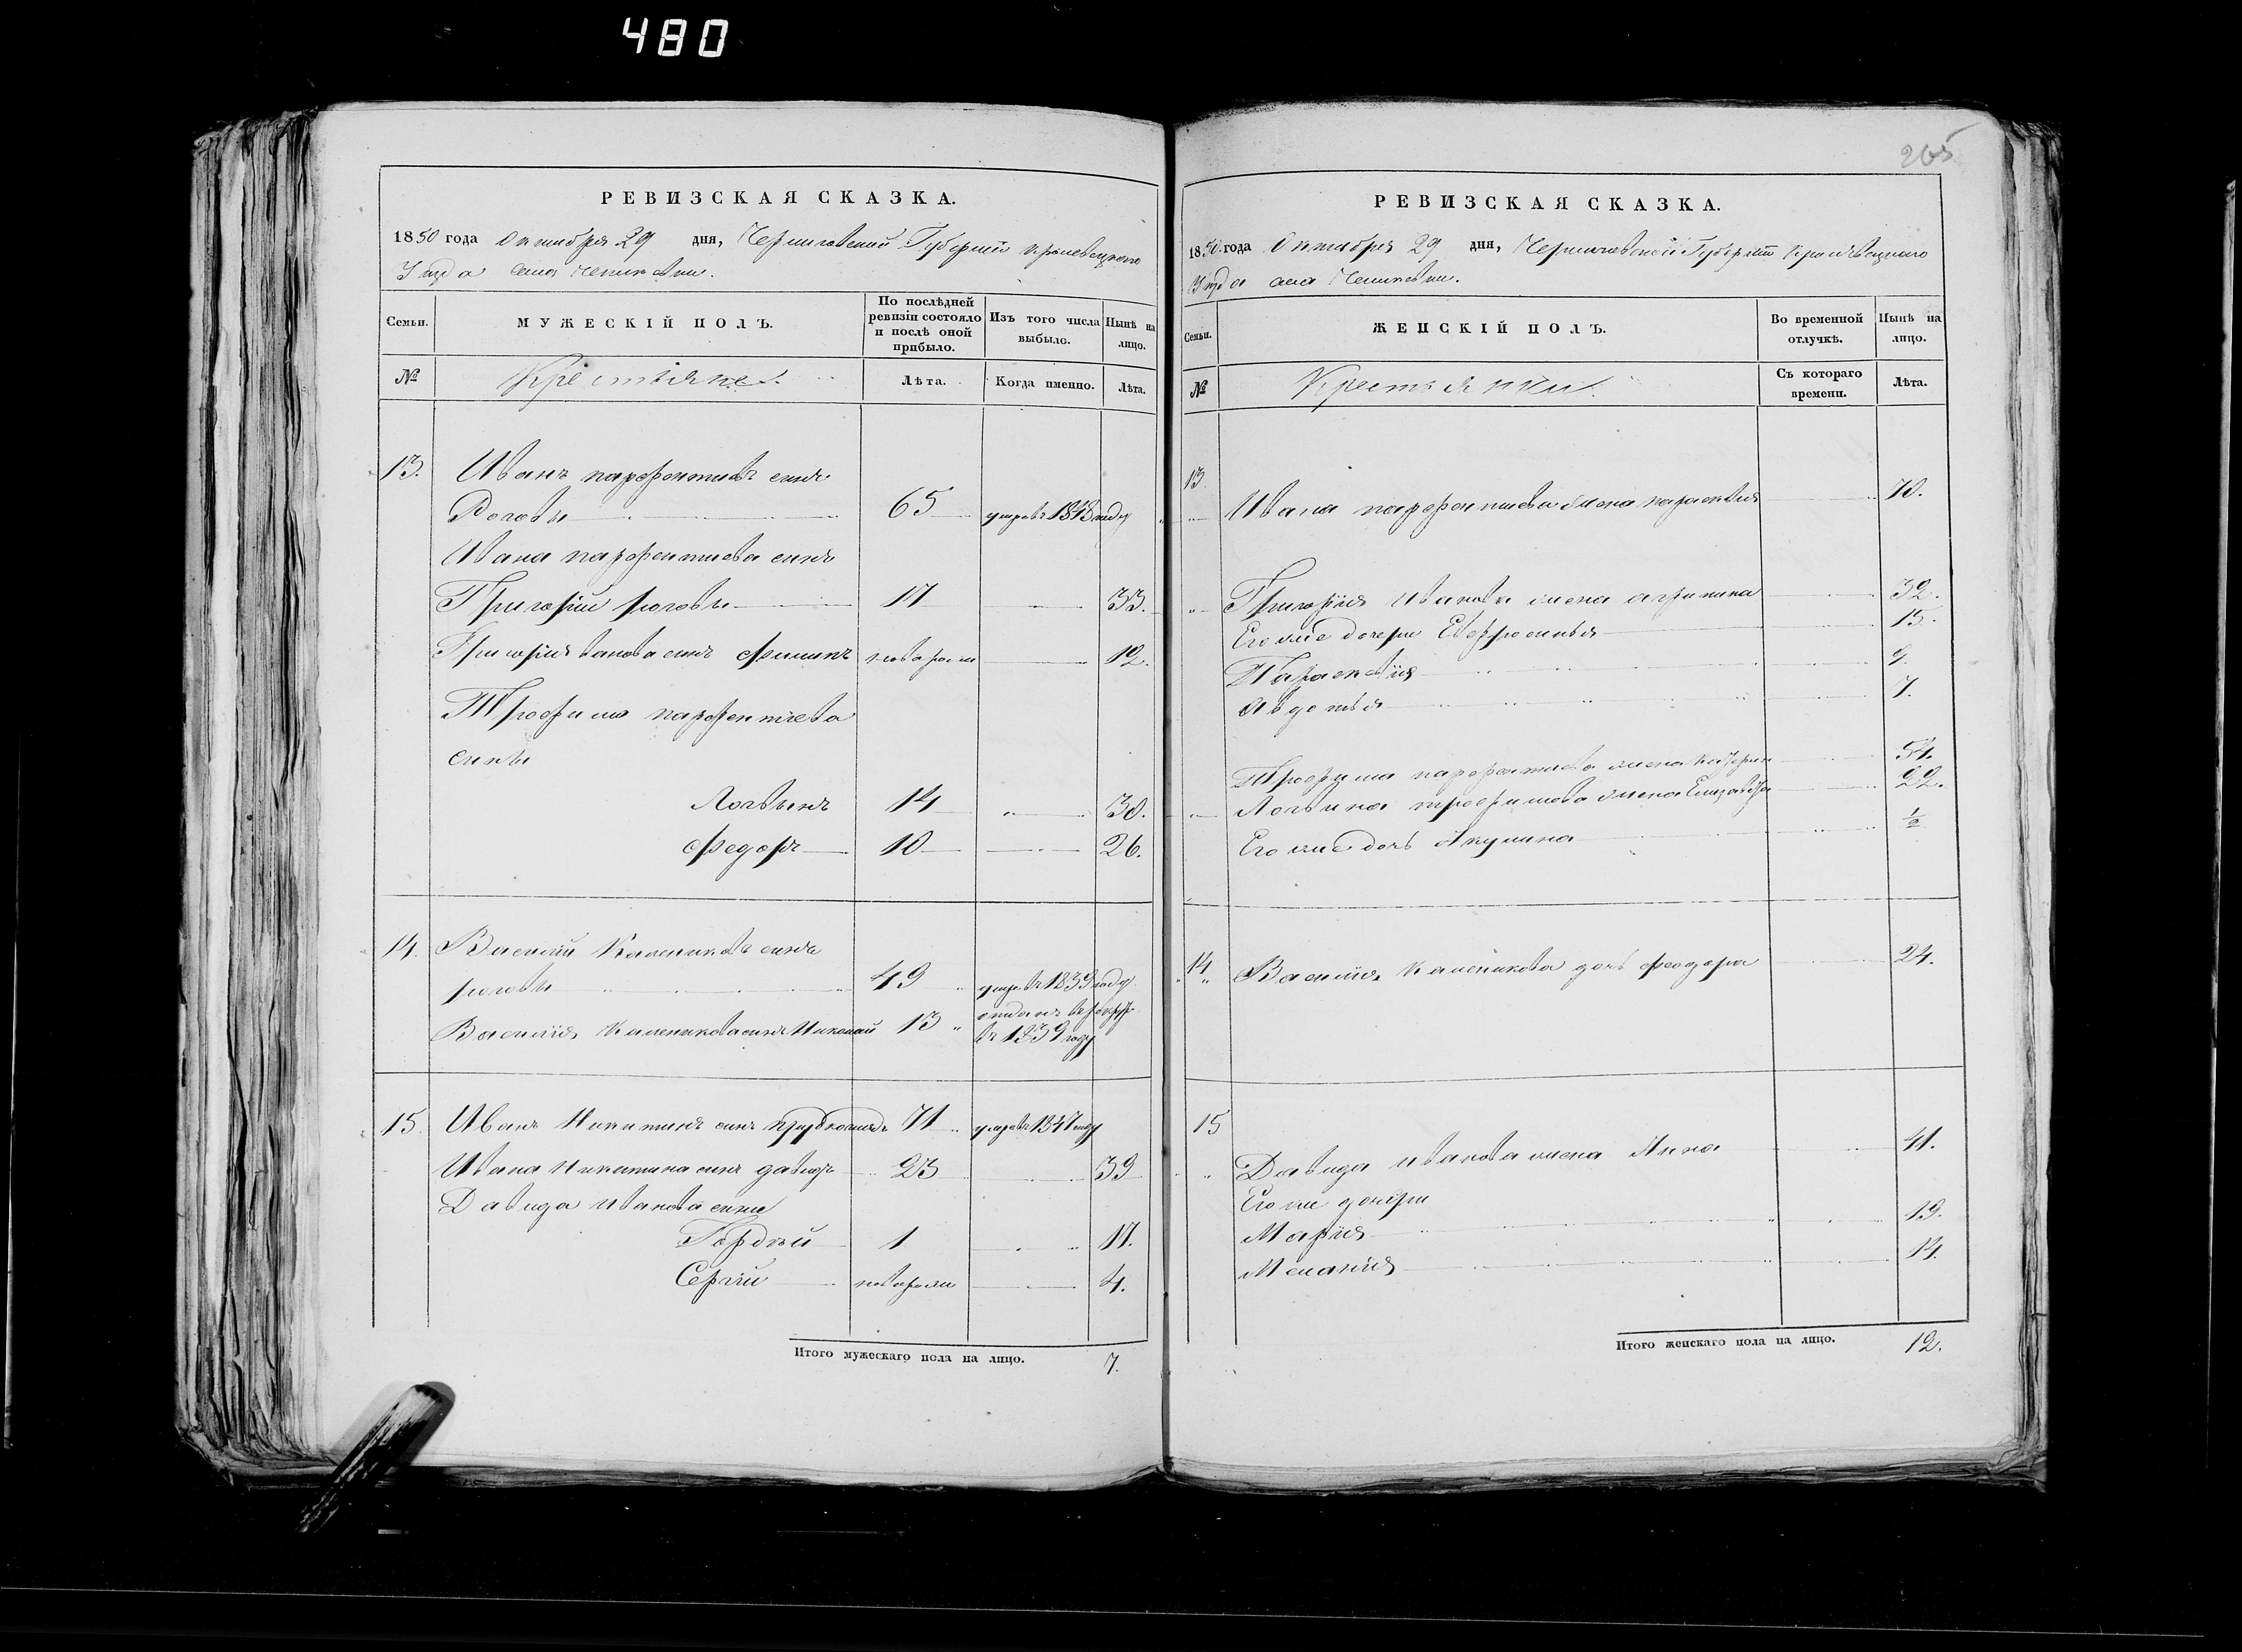 480
265
РЕВИЗСКАЯ СКАЗКА.
1850 года Октября 29 дня, Черниговской Губерній Кролевецкого
Уезда села
Семьи.
МУЖЕСКІЙ ПОЛЪ.
По послѣдней ревизіи состояло и послѣ оной прибыло.
Изъ того числа выбыло.
Нынѣ на лицо.
№
Крестьяне.
Лѣта.
Когда именно.
Лѣта.
13. Иванъ парфентиевъ синъ
Роговы 65 умре въ 1848 году
Ивана парфентиева синъ
Григорій роговы 17 33.
Григорія Иванова синъ Филипъ новорожд 12.
Трофима парфентиева
сины
Логвинъ 14 30.
Федоръ 10 26.
14. Василій Калениковъ синъ
роговы 49 умре въ 1839 году
Василія Каленикова синъ Николай 13 отданъ въ рекруты въ 1839 году
15. Иванъ Никитинъ синъ 71 умре въ 1847 году
Ивана Никитина синъ давидъ 23 39
Давида Иванова сины
Гордѣй 1 17.
Сергій новорожд 4.
Итого мужескаго пола на лицо. 7.
РЕВИЗСКАЯ СКАЗКА.
1850 года Октября 29 дня, Черниговской Губерніи Кролевецкаго
Уезда села
Семьи.
ЖЕНСКІЙ ПОЛЪ.
Во временной отлучкѣ.
Нынѣ на лицо.
№
Крестьянки.
Съ котораго времени.
Лѣта.
13.
Ивана парфентиева жена параскевия 70.
Григорія Иванова жена агрипина 32.
Его же дочери Евфросинья 15.
Параскевія 9.
Авдотья 7.
Трофима парфентиева жена 54.
Логвина трофимова жена Елизавета 22.
Его же дочь Акулина 1/2
14 Василія Каленикова дочь феодора 24.
15
Давида Иванова жена Анна 41.
Его же дочери
Марія 19.
Меланія 14.
Итого женскаго пола на лицо. 12.